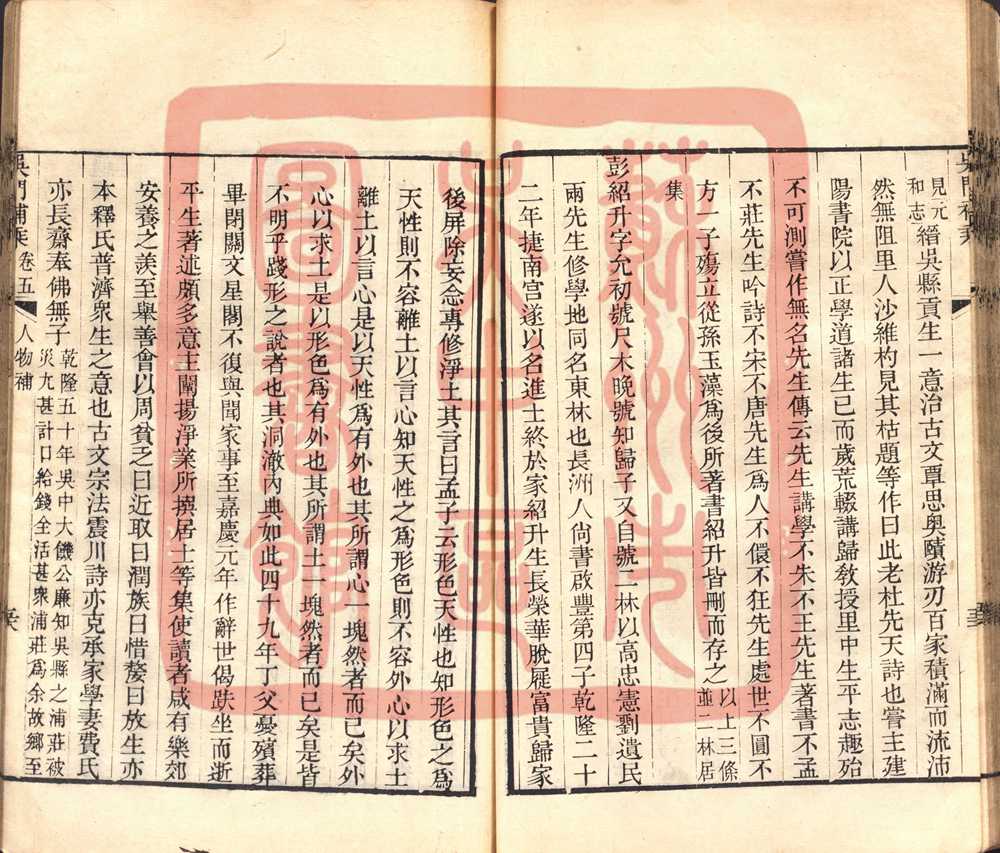 見元和志縉吳縣貢生一意治古文覃思奥賾游刃百家積滿而流沛
然無阻里人沙維杓見其枯題等作曰此老杜先天詩也嘗主建
陽書院以正學道諸生已而歲荒輟講歸敎授里中生平志趣殆
不可測嘗作無名先生傳云先生講學不朱不王先生著書不孟
不莊先生吟詩不宋不唐先生爲人不儇不狂先生處世不圓不
方一子殤立從孫玉藻爲後所著書紹升皆刪而存之以上三條並二林居
集
彭紹升字允初號尺木晚號知歸子又自號二林以高忠憲劉遺民
兩先生修學地同名東林也長洲人尙書啟豐第四子乾隆二十
二年捷南宫遂以名進士終於家紹升生長榮華脫屣富貴歸家
後屏除妄念專修淨土其言曰孟子云形色天性也知形色之爲
天性則不容離土以言心知天性之爲形色則不容外心以求土
離土以言心是以天性爲有外也其所謂心一塊然者而已矣外
心以求土是以形色爲有外也其所謂土一塊然者而已矣是皆
不明乎踐形之說者也其洞澈內典如此四十九年丁父憂殯葬
畢閉關文星閣不復與聞家事至嘉慶元年作辭世偈趺坐而逝
平生著述頗多意主闡揚淨業所撰居士等集使讀者咸有樂郊
安養之羨至舉善會以周貧乏曰近取曰潤族曰惜嫠曰放生亦
本釋氏普濟衆生之意也古文宗法震川詩亦克承家學妻費氏
亦長齋奉佛無子乾隆五十年吳中大饑公廉知吳縣之浦莊被災尤甚計口給錢全活甚衆浦莊爲余故鄉至
吳門補乘卷五 人物補
蘇州市
人士區
圖書館